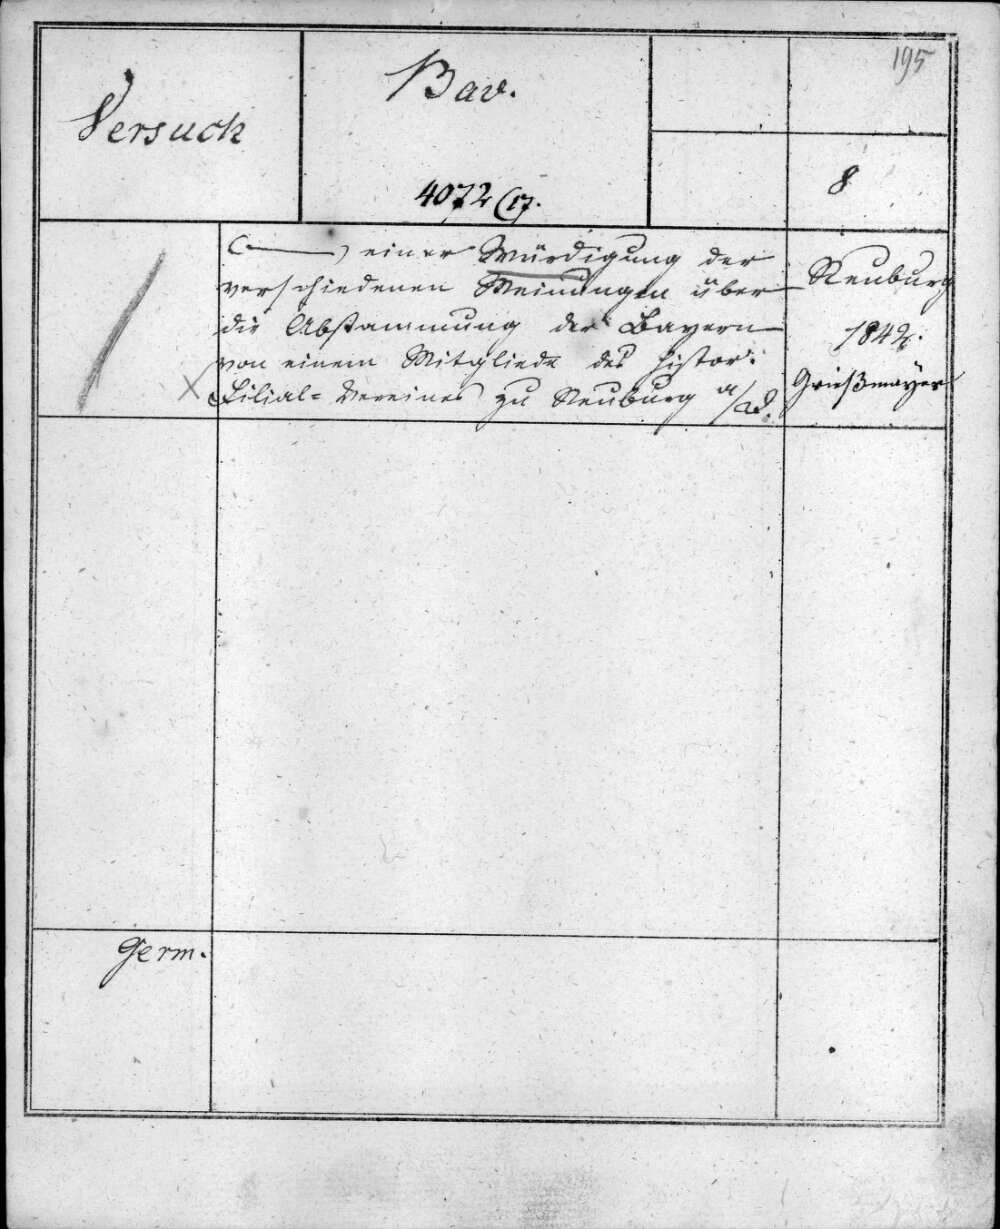 195
Versuch
Bav.
4072 (17.
8
(——) einer Würdigung der
verschiedenen Meinungen über
die Abstammung der Bayern
von einem Mitgliede des histor.
Filial-Vereines zu Neuburg a/D.
Neuburg
1842.
Grießmayer
Germ.